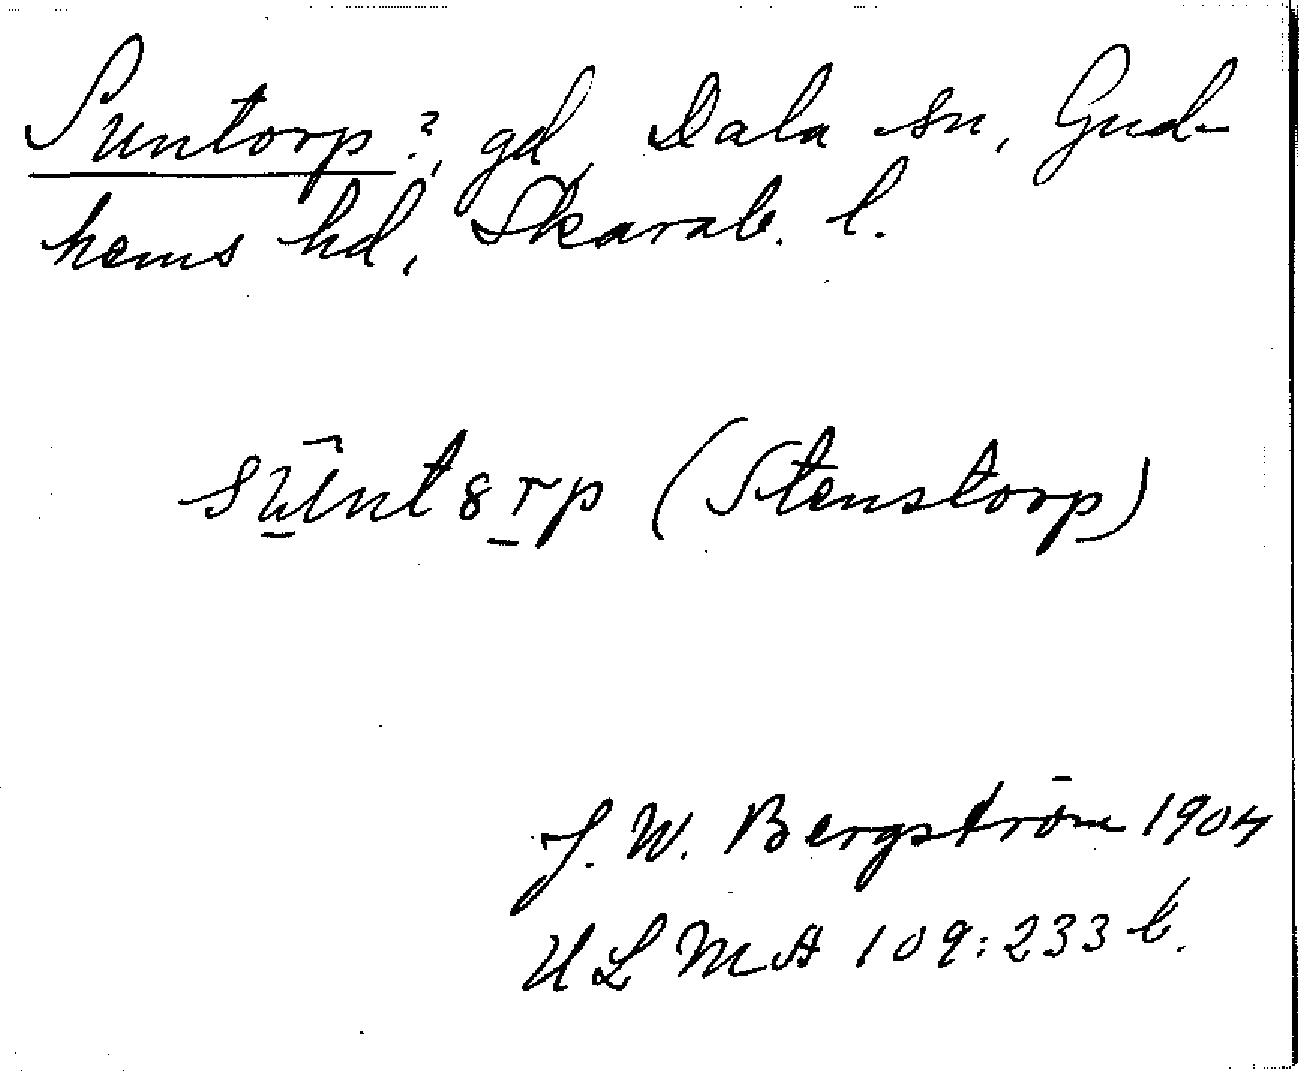 Suntorp ?, gd, Dala sn, Gud-
hems hd, Skarab. l.
(Stenstorp)
J. W. Bergström 1904
ULMA 109:233 b.